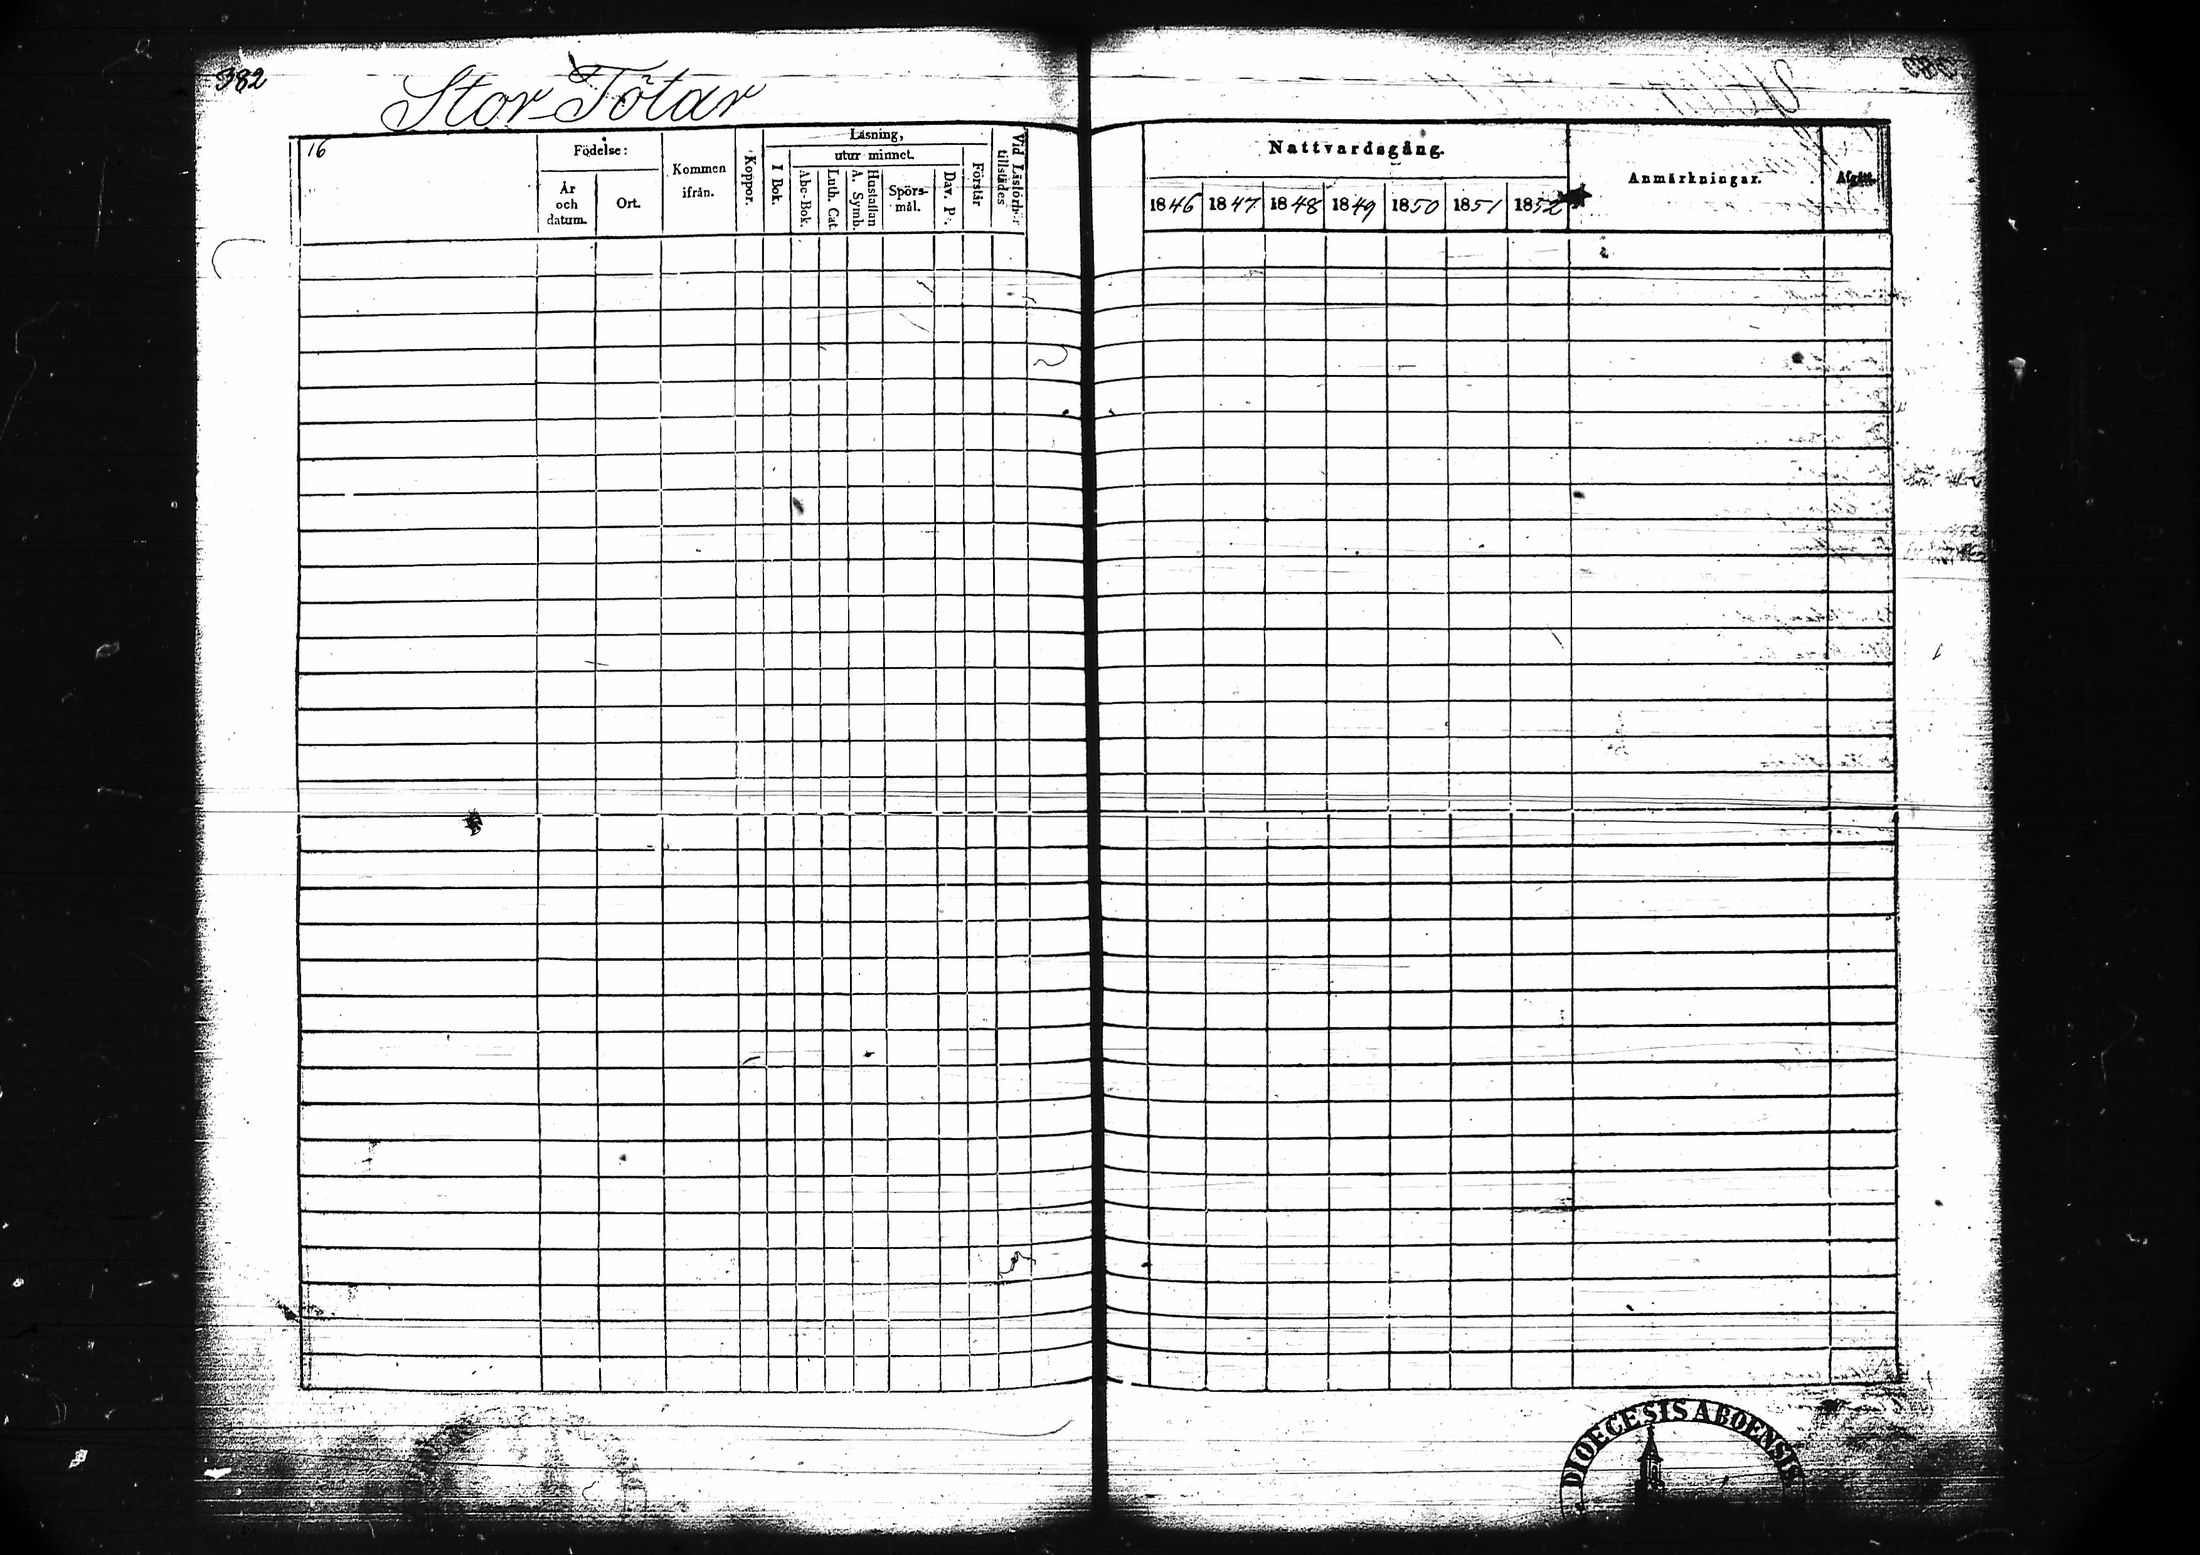 382
Stor-Tötar
16
Födelse:
År och datum.
Ort.
Kommen ifrån.
Koppor.
Läsning,
utur minnet.
I Bok.
Abc-Bok.
Luth. Cat.
Hustaflan A. Symb.
Spörs-mål.
Dav. Ps.
Förstår
Vid Läsförhör tillstädes
Nattvardsgång.
1846 1847 1848 1849 1850 1851 1852
Anmärkningar.
Afgått.
DIOECESIS ABOENSIS